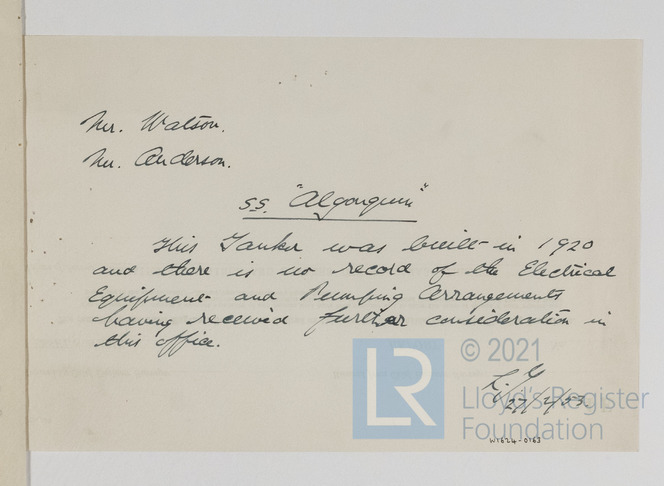 Mr. Watson.
Mr. Anderson.
S.S. "Algonquin"
This Tanker was built in 1920
and there is no record of the Electrical
Equipment and Pumping Arrangements
having received further consideration in
this office.
27/2/53.
LR
© 2021
Lloyd's Register
Foundation
W1624-0163